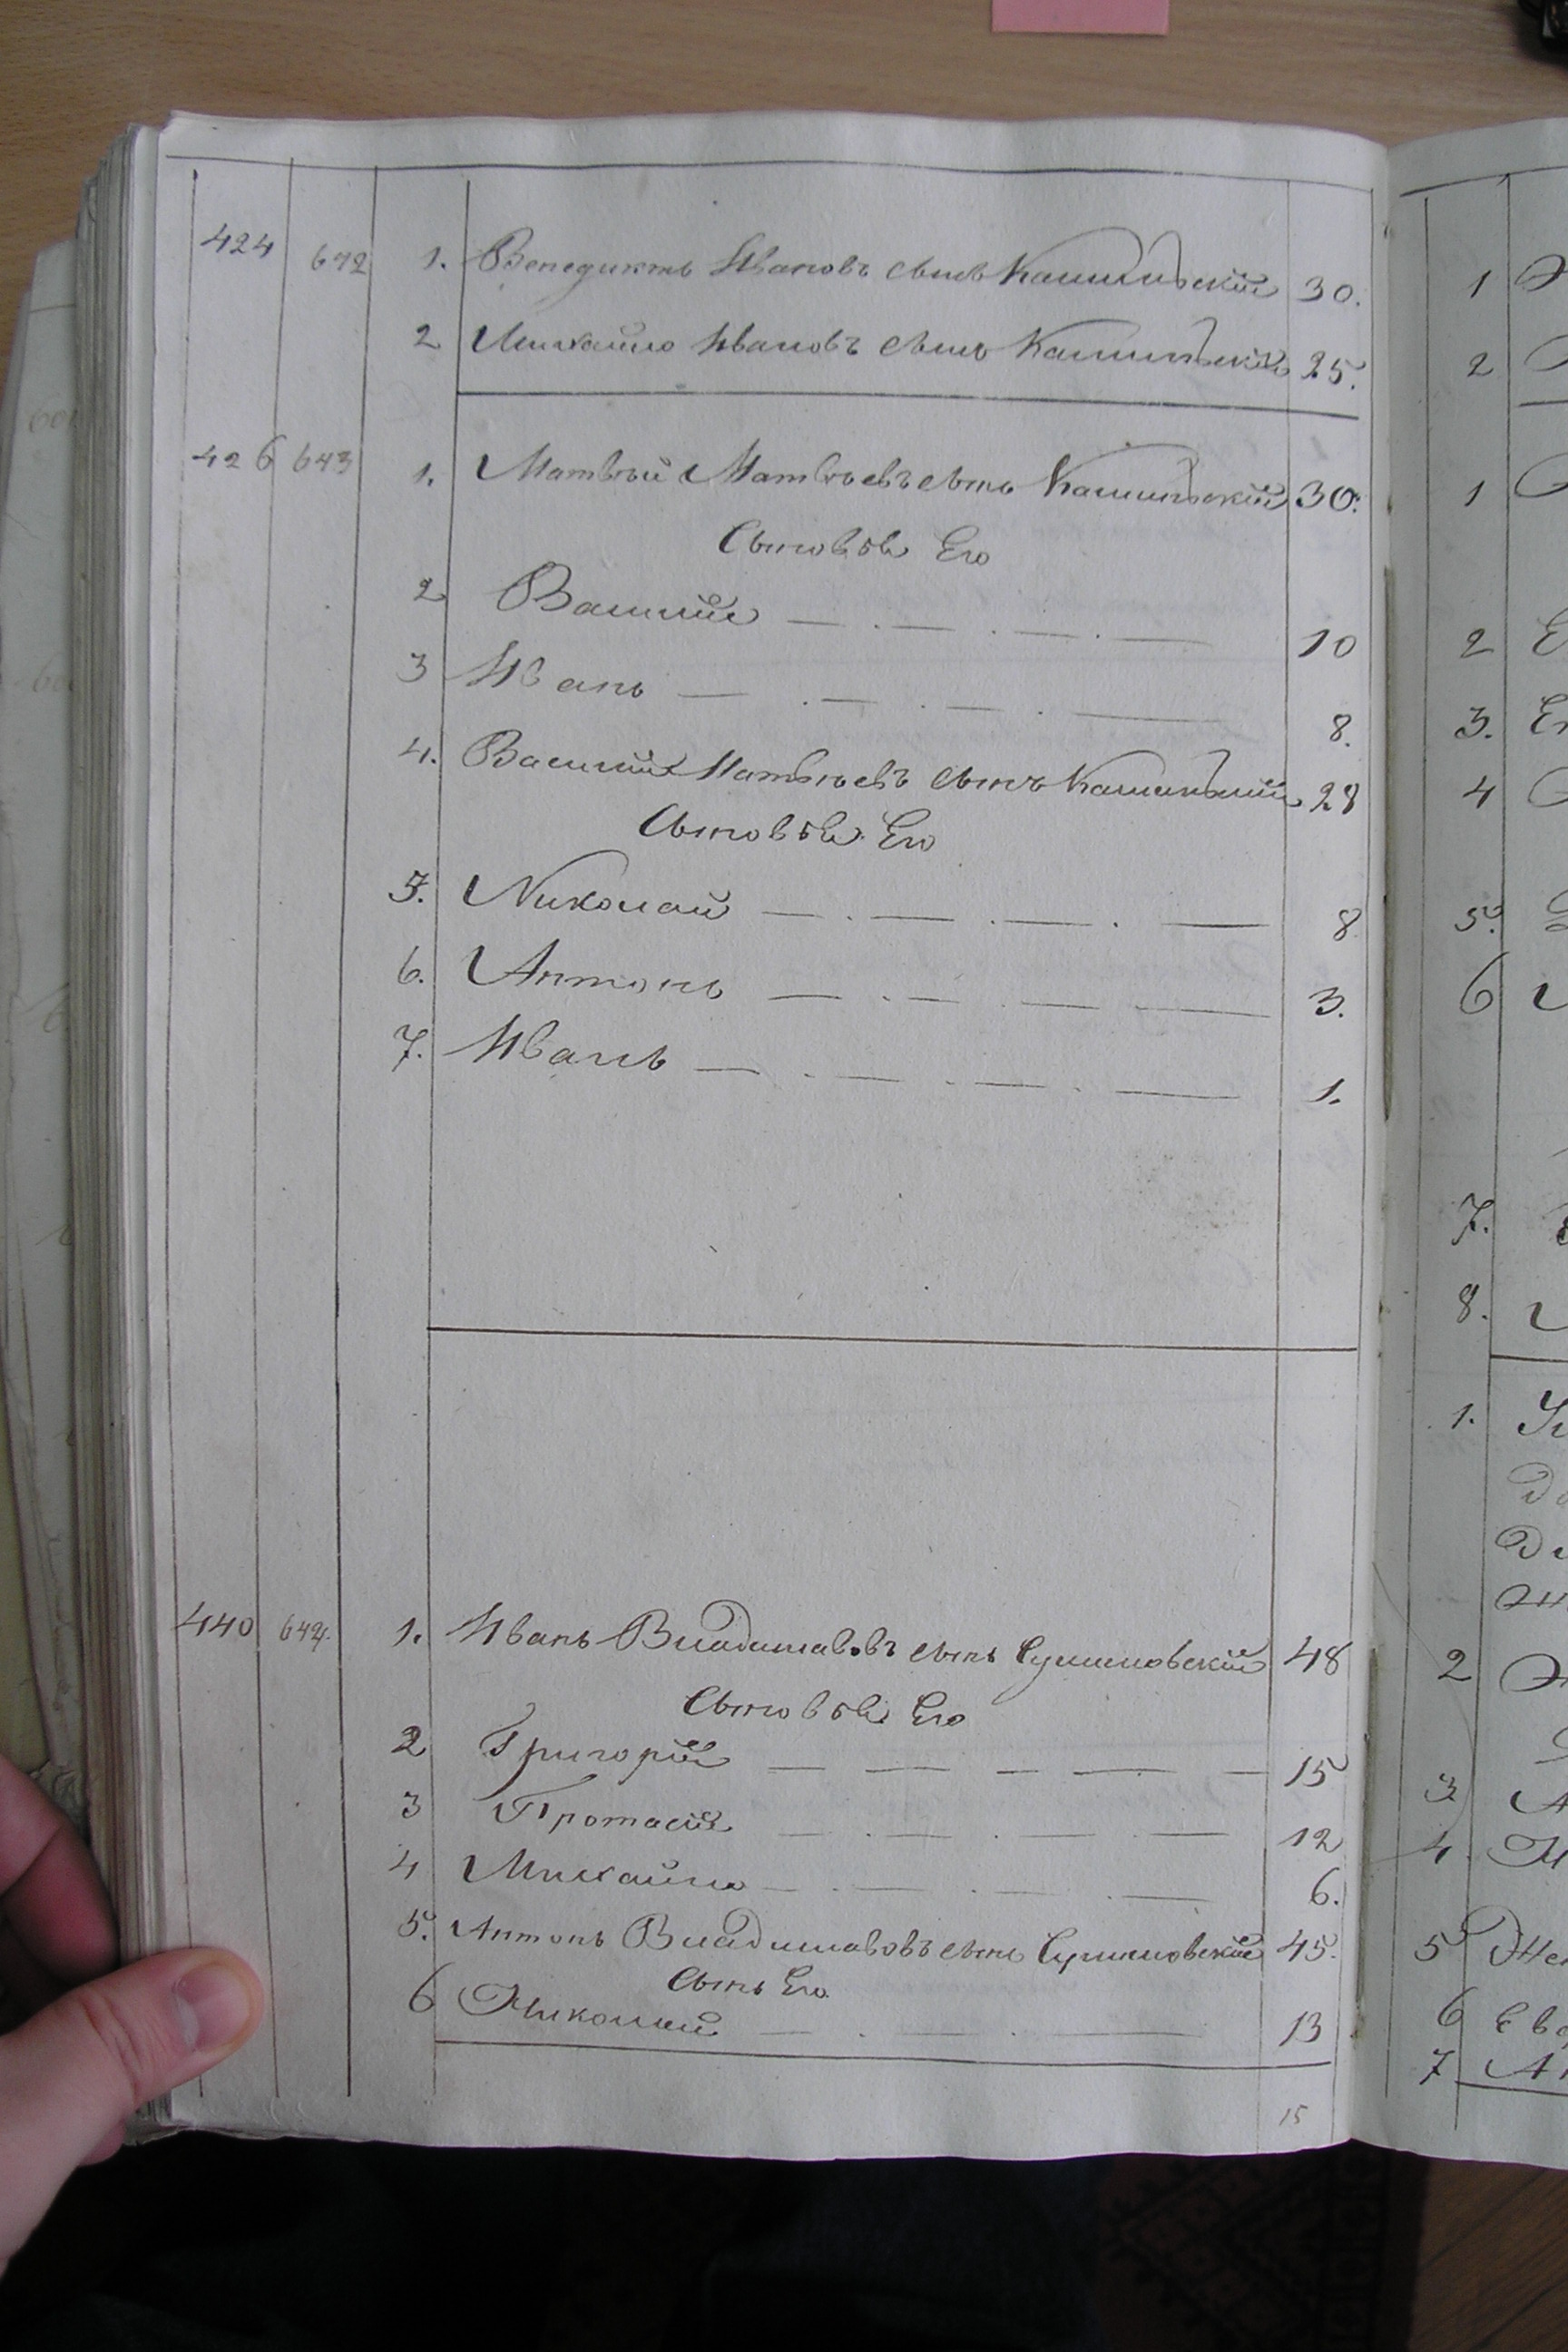 424 642 1. Венедиктъ Ивановъ сынъ Каминскій 30.
2 Михайло Ивановъ сынъ Каминскій 25.
426 643 1. Матвѣй Матвѣевъ сынъ Каминскій 30.
Сыновья Его
2 Василій 10
3 Иванъ 8.
4. Василій Матвѣевъ сынъ Каминскій 28
Сыновья Его
5. Николай 8
6. Антонъ 3.
7. Иванъ 1.
440 644. 1. Иванъ Владиславовъ сынъ 48
Сыновья Его
2 Григорій 15
3 Протасій 12
4 Михайло 6.
5. Антонъ Владиславовъ сынъ 45.
Сынъ Его
6 Николай 13
15
1
2
1
2 Е
3. Ел
4
5.
6
7.
8.
1.
2
3
4
5 Жен
6 Ев
7 Ан